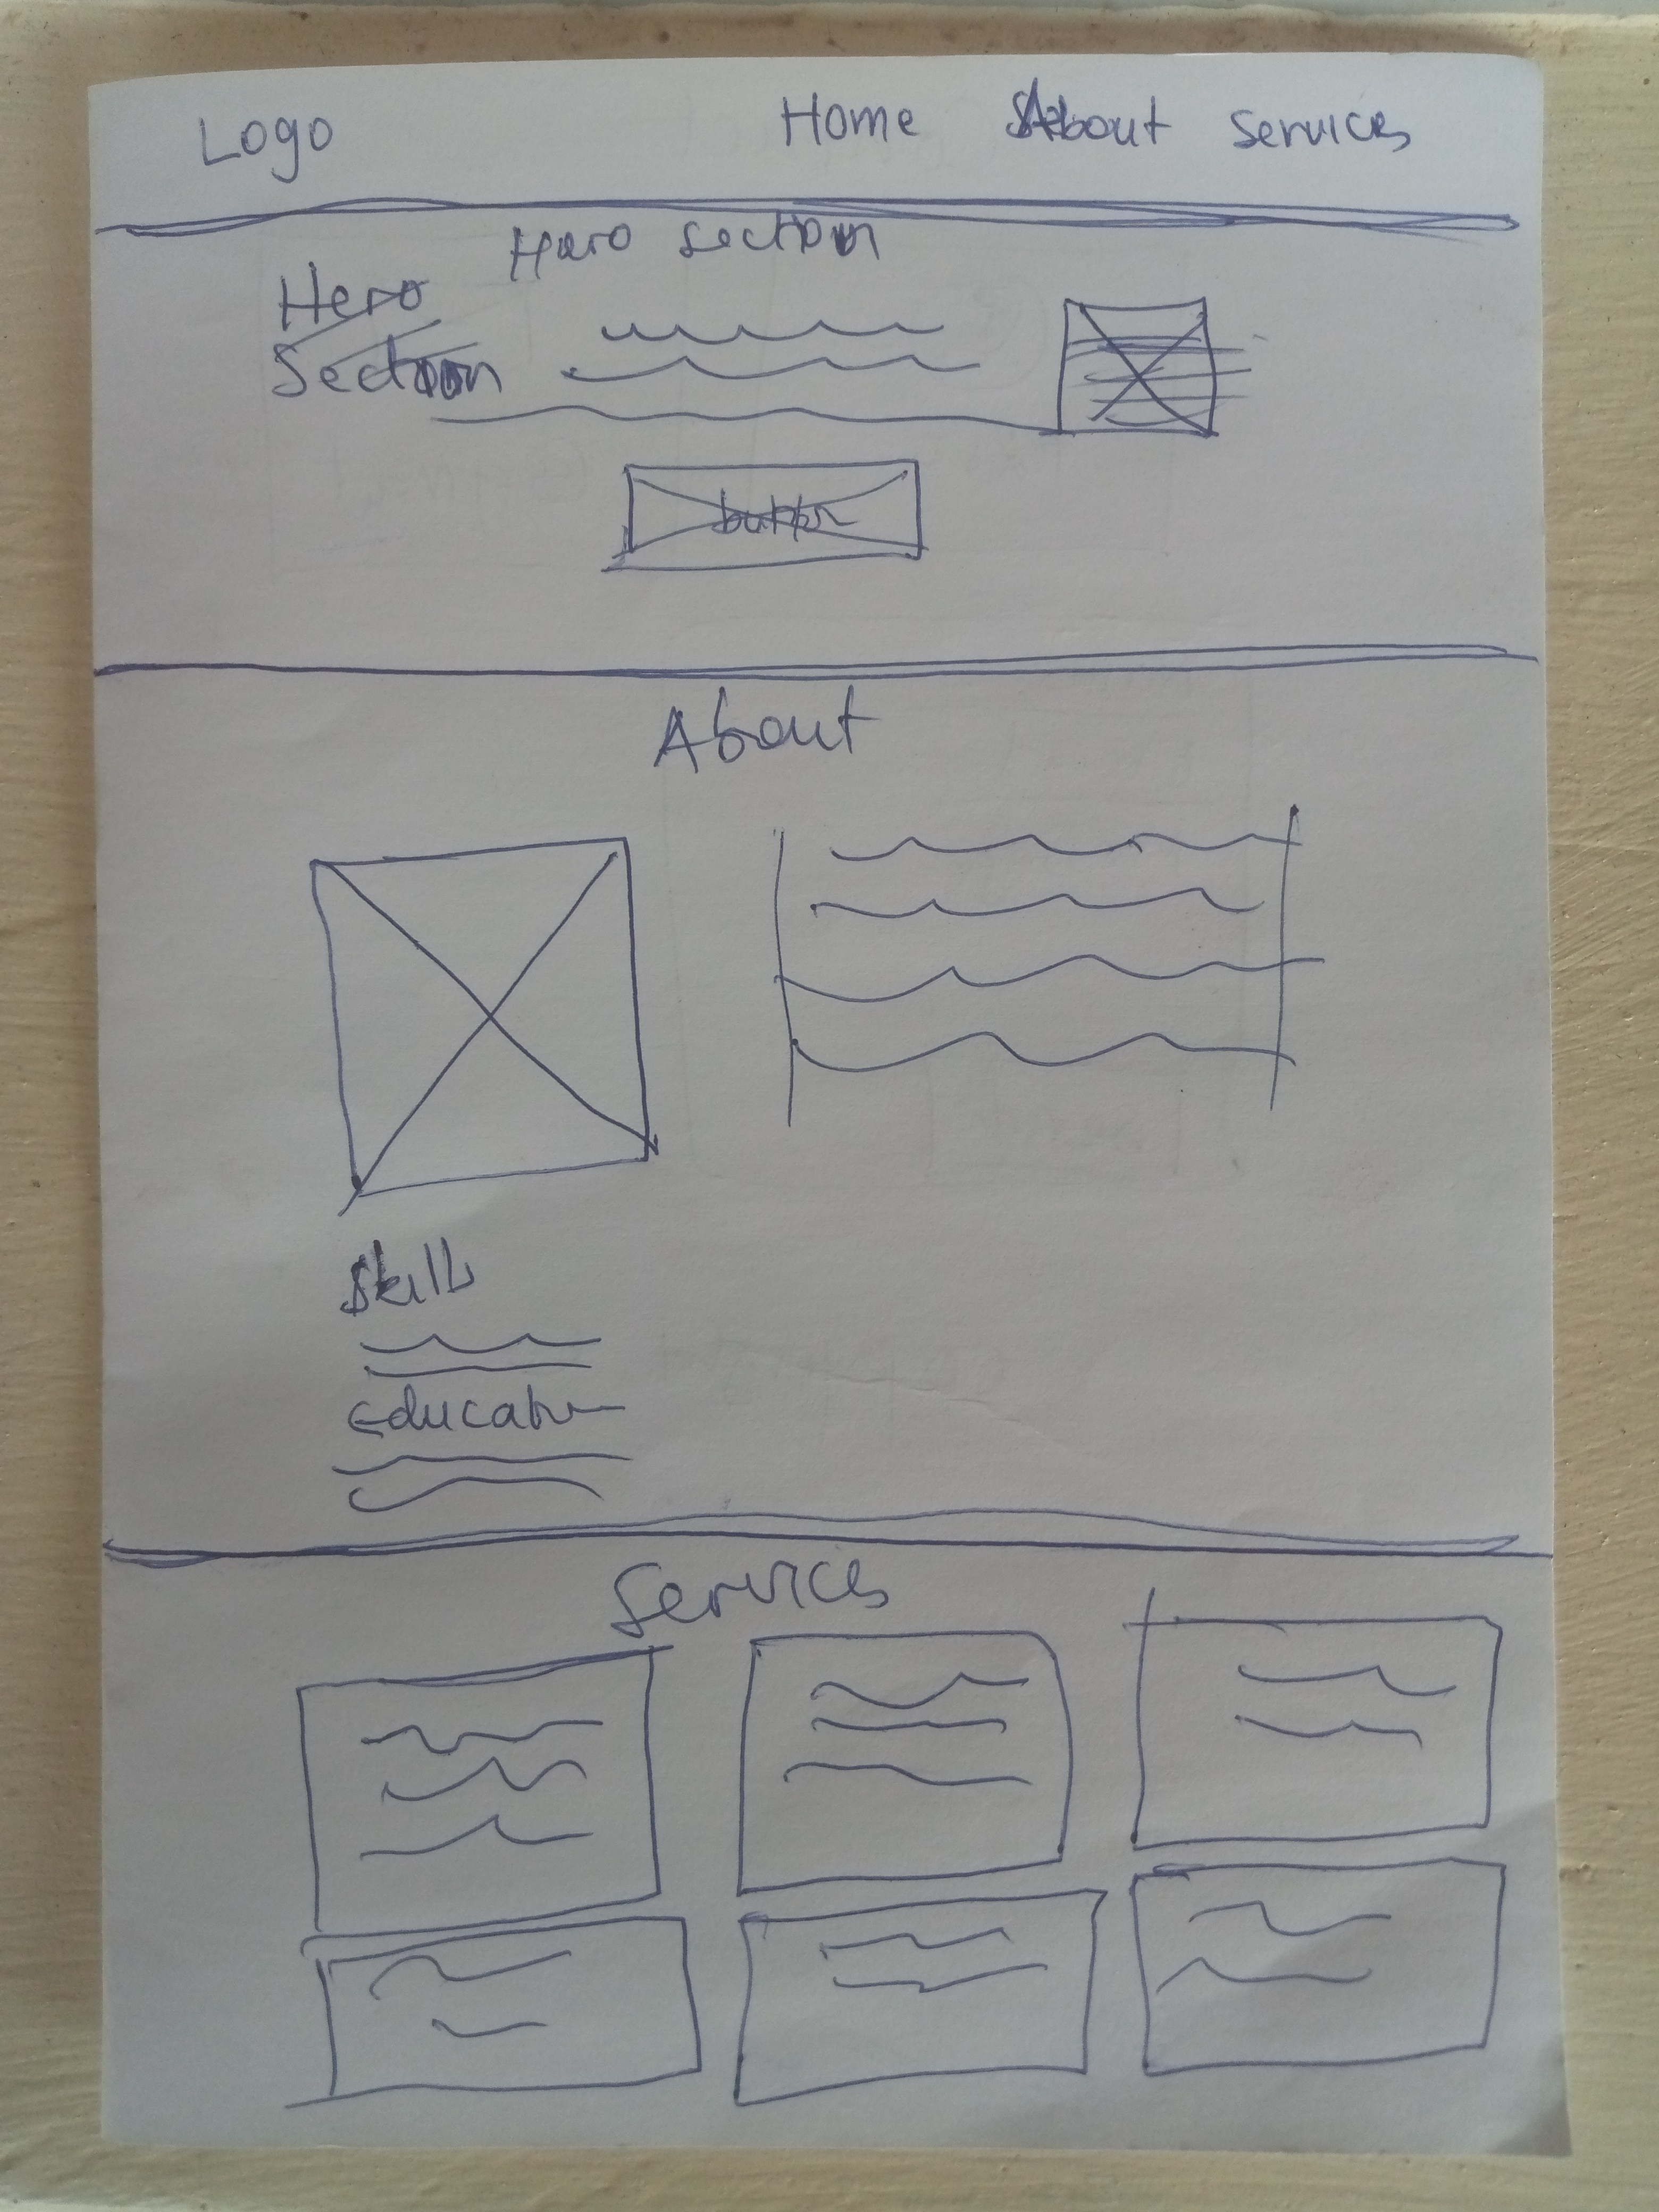 Logo Home About Services
Hero Section
Hero
Section
button
About
Skills
Education
Services